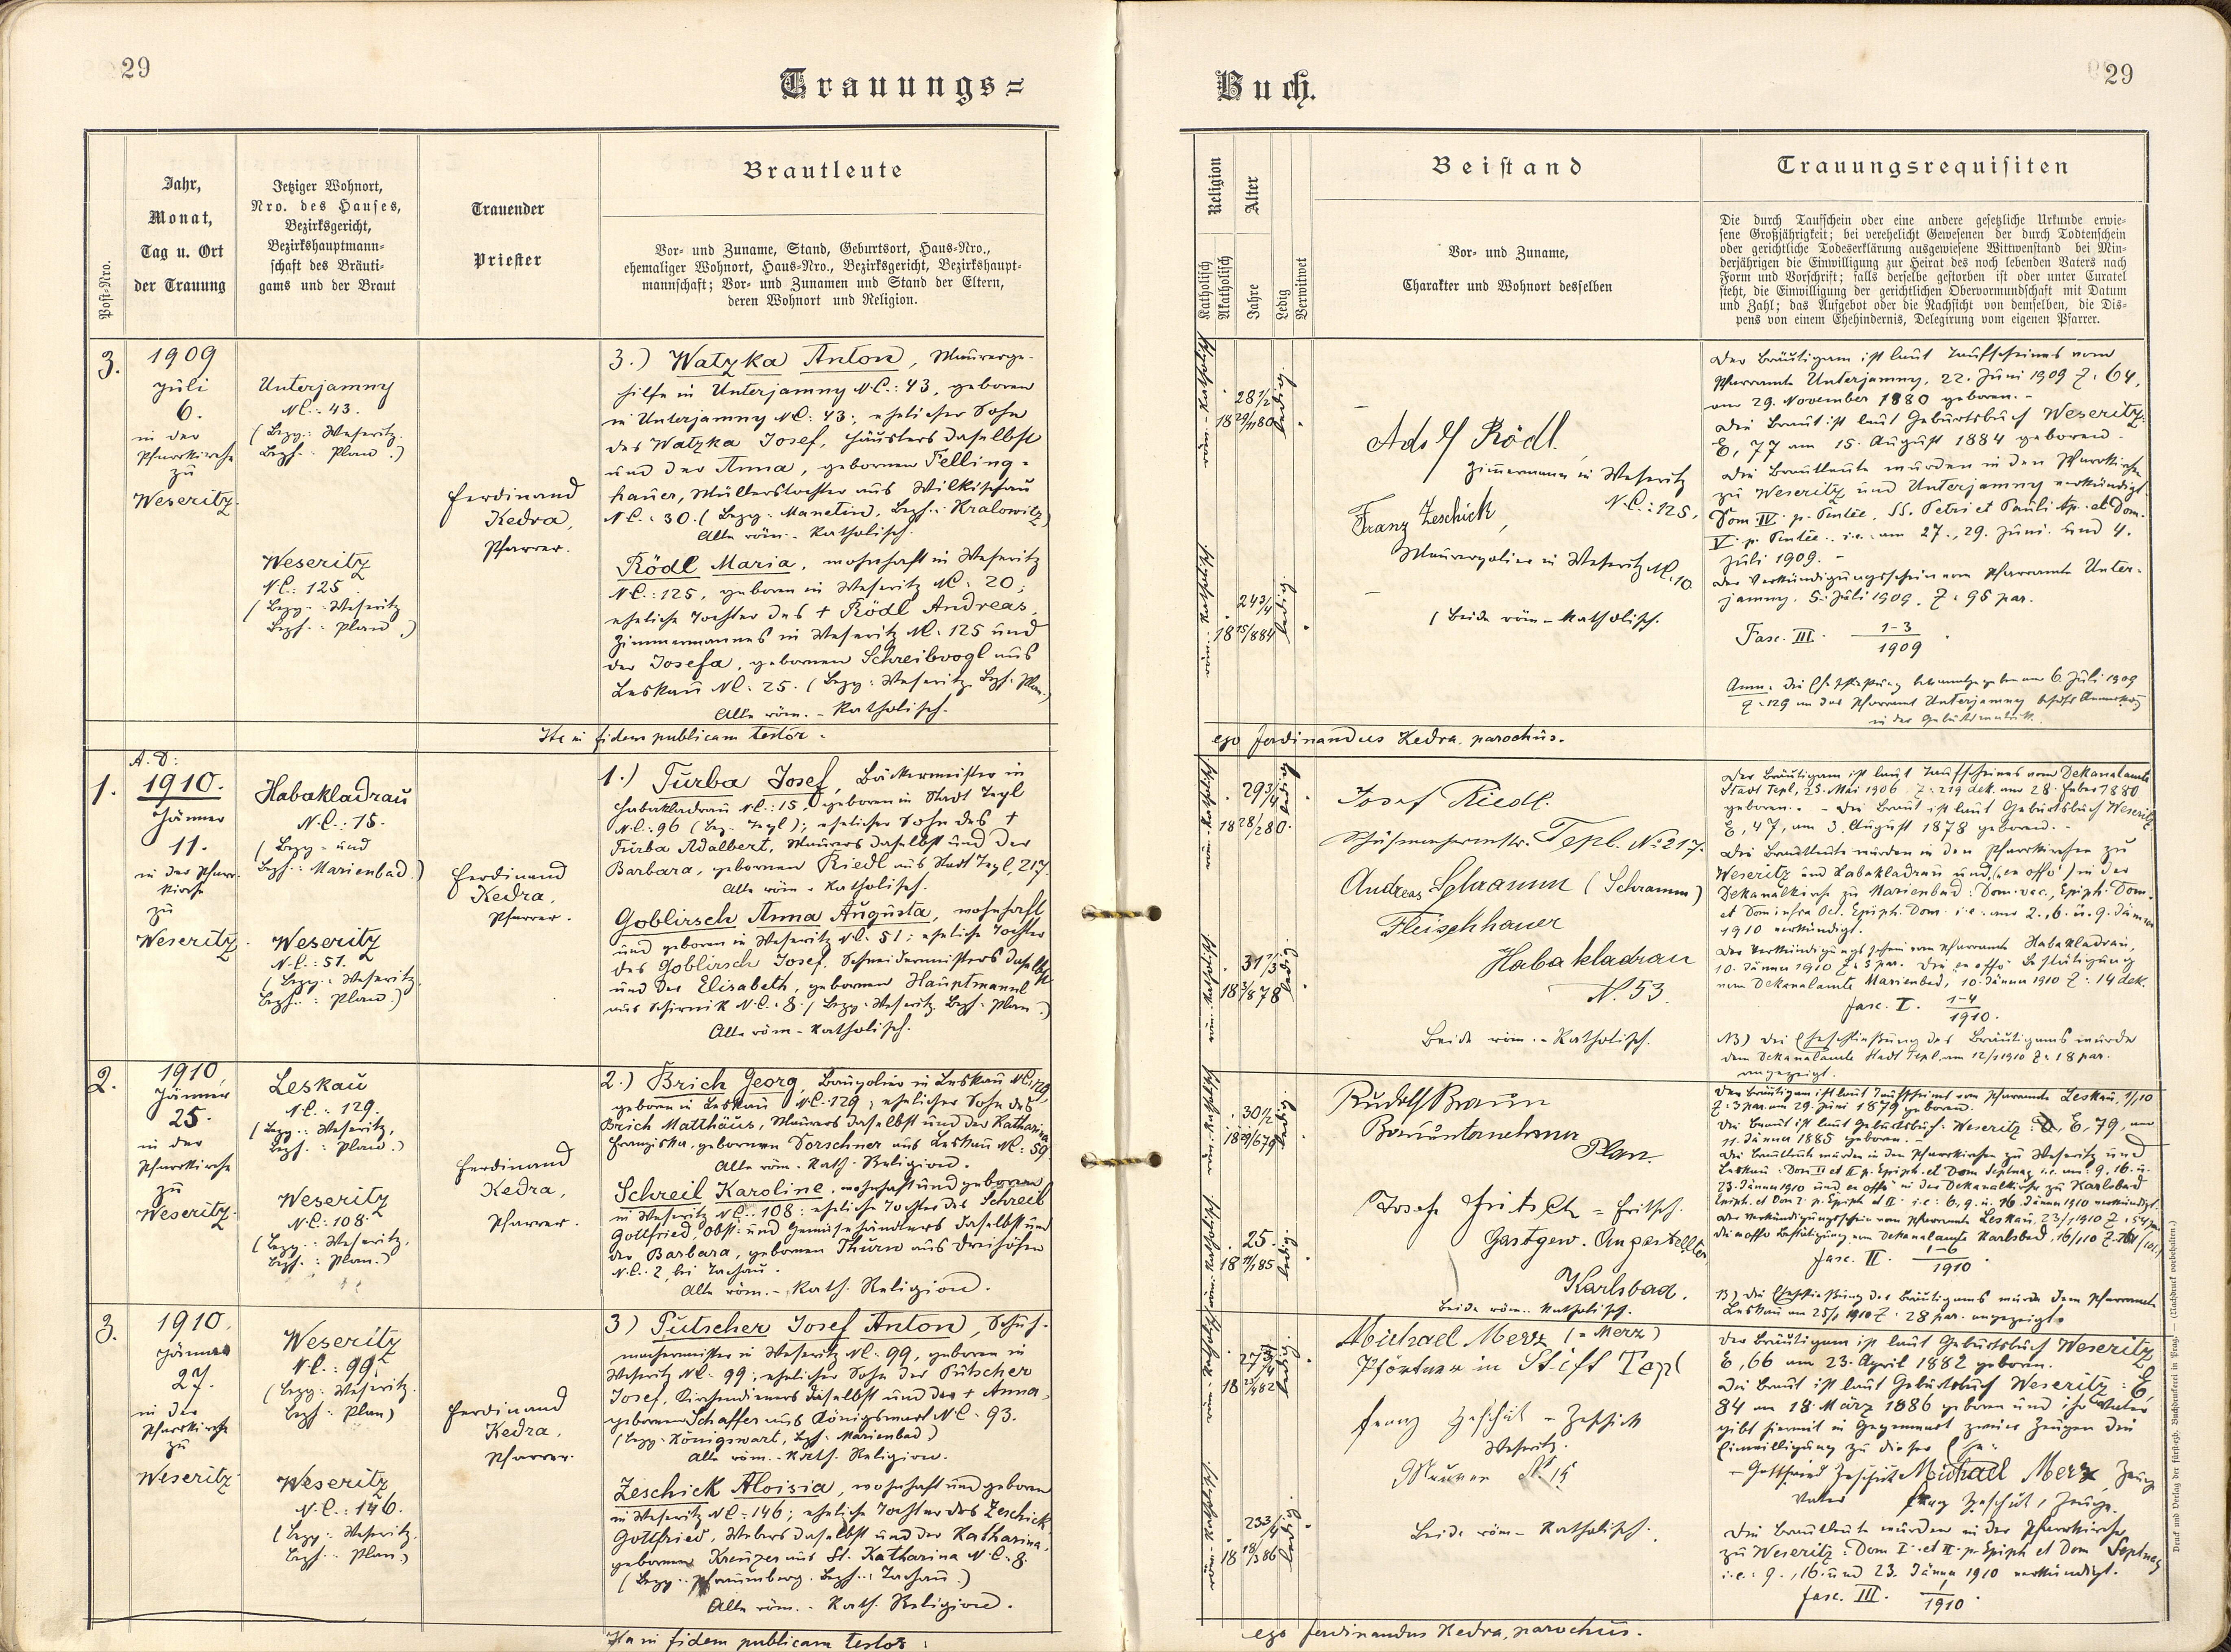 29
Trauungs=
Post-Nro.
Jahr,
Monat,
Tag u. Ort
der Trauung
Jetziger Wohnort,
Nro. des Hauses,
Bezirksgericht,
Bezirkshauptmann=
schaft des Bräuti=
gams und der Braut
Trauender
Priester
Brautleute
Vor- und Zuname, Stand, Geburtsort, Haus-Nro.,
ehemaliger Wohnort, Haus-Nro., Bezirksgericht, Bezirkshaupt-
mannschaft; Vor- und Zunamen und Stand der Eltern,
deren Wohnort und Religion.
3.
1909
Juli
6.
in der
Pfarrkirche
zu
Weseritz.
Unterjamny
N.C.: 43.
(Bezg.: Weseritz.
Bezh.: Plan.)
Weseritz
N.C.: 125
(Bezg.: Weseritz
Bezh.: Plan.)
Ferdinand
Kedra,
Pfarrer.
3.) Watzka Anton, Maurerge-
hilfe in Unterjamny N.C.: 43, geboren
in Unterjamny N.C: 43; ehelicher Sohn
des Watzka Josef, Häuslers daselbst
und der Anna, gebornen Felling-
hauer, Müllerstochter aus Wilkischau
N.C.: 30. (Bezg.: Manetin, Bezh.: Kralowitz)
Alle röm. - katholisch.
Rödl Maria, wohnhaft in Weseritz
N.C.: 125, geboren in Weseritz N.C: 20;
eheliche Tochter des + Rödl Andreas,
Zimmermannes in Weseritz N.C: 125 und
der Josefa, gebornen Schreibvogl aus
Leskau N.C: 25. (Bezg.: Weseritz, Bezh.: Plan.)
Alle röm. - katholisch.
Ita in fidem publicam testor:
1.
A. D:
1910.
Jänner
11.
in der Pfarr-
kirche
zu
Weseritz.
Habakladrau
N.C.: 15.
(Bezg.- und
Bezh.: Marienbad.)
Weseritz
N.C.: 51.
(Bezg.: Weseritz.
Bezh.: Plan.)
Ferdinand
Kedra,
Pfarrer.
1.) Turba Josef, Bäckermeister in
Habakladrau N.C.: 15, geboren in Stadt Tepl
N.C.: 96 (Bez. Tepl); ehelicher Sohn des +
Turba Adalbert, Maurers daselbst und der
Barbara, gebornen Riedl aus Stadt Tepl, 217.
Alle röm. - katholisch.
Goblirsch Anna Augusta, wohnhaft
und geboren in Weseritz N.C. 51; eheliche Tochter
des Goblirsch Josef, Schneidermeisters daselbst
und der Elisabeth, gebornen Hauptmannl
aus Schirnik N.C.: 8. (Bezg.: Weseritz, Bezh.: Plan.)
Alle röm. - katholisch.
2.
1910
Jänner
25.
in der
Pfarrkirche
zu
Weseritz.
Leskau
N.C.: 129.
(Bezg.: Weseritz,
Bezh.: Plan.)
Weseritz
N.C.: 108.
(Bezg.: Weseritz,
Bezh.: Plan.)
Ferdinand
Kedra,
Pfarrer.
2.) Brich Georg, Baupolier in Leskau N.C: 129,
geboren in Leskau N.C.: 129; ehelicher Sohn des
Brich Matthäus, Maurers daselbst und der Katharina
Franziska, gebornen Dorschner aus Leskau N.C: 59.
Alle röm. kath. Religion.
Schreil Karoline, wohnhaft und geboren
in Weseritz N.C.: 108; eheliche Tochter des Schreil
Gottfried, Obst- und Gemüsehändlers daselbst und
der Barbara, gebornen Thurn aus Dreihöfen
N.C.: 2, bei Tachau.
Alle röm. - kath. Religion.
3.
1910.
Jänner
27.
in der
Pfarrkirche
zu
Weseritz
Weseritz
N.C.: 99.
(Bezg.: Weseritz.
Bezh.: Plan)
Weseritz
N.C.: 146.
(Bezg.: Weseritz.
Bezh.: Plan.)
Ferdinand
Kedra,
Pfarrer.
3) Putscher Josef Anton, Schuh-
machermeister in Weseritz N.C: 99, geboren in
Weseritz N.C: 99; ehelicher Sohn des Putscher
Josef, Kirchendieners daselbst und der + Anna,
gebornen Schaffer aus Königswart N.C: 93.
(Bezg.: Königswart, Bezh.: Marienbad.)
Alle röm. - kath. Religion.
Zeschick Aloisia, wohnhaft und geboren
in Weseritz N.C: 146; eheliche Tochter des Zeschick
Gottfried, Webers daselbst und der Katharina,
gebornen Kreuzer aus St. Katharina N.C: 8.
(Bezg.: Pfraumberg. Bezh.: Tachau.)
Alle röm. - kath. Religion.
Ita in fidem publicam testor:
Buch.
29
Religion
Katholisch
Akatholisch
Alter
Jahre
Ledig
Verwitwet
Beistand
Vor- und Zuname,
Charakter und Wohnort desselben
Trauungsrequisiten
Die durch Taufschein oder eine andere gesetzliche Urkunde erwie-
sene Großjährigkeit; bei verehelicht Gewesenen der durch Todtenschein
oder gerichtliche Todeserklärung ausgewiesene Wittwenstand bei Min-
derjährigen die Einwilligung zur Heirat des noch lebenden Vaters nach
Form und Vorschrift; falls derselbe gestorben ist oder unter Curatel
steht, die Einwilligung der gerichtlichen Obervormundschaft mit Datum
und Zahl; das Aufgebot oder die Nachsicht von demselben, die Dis-
pens von einem Ehehindernis, Delegirung vom eigenen Pfarrer.
28 1/2
18 29/11 80
ledig.
24 3/4
18 15/8 84
ledig
Adolf Rödl,
Zimmermann in Weseritz
N.C.: 125.
Franz Zeschick,
Maurerpolier in Weseritz N.C: 10.
(Beide röm.-katholisch.
Der Bräutigam ist laut Taufscheines vom
Pfarramte Unterjamny, 22. Juni 1909 Z: 64,
am 29. November 1880 geboren. -
Die Braut ist laut Geburtsbuch Weseritz:
E, 77 am 15. August 1884 geboren.
Die Brautleute wurden in den Pfarrkirchen
zu Weseritz und Unterjamny verkündigt
Dom. IV. p. Pentec., SS. Petri et Pauli Ap. et Dom.
V. p. Pentec. i.e. am 27., 29. Juni und 4.
Juli 1909. -
Der Verkündigungsschein vom Pfarramte Unter-
jamny, 5. Juli 1909, Z: 95 par.
Fasc. III. 1-3/1909.
Anm. Die Eheschließung bekanntgegeben am 6. Juli 1909
Z: 129 an das Pfarramt Unterjamny behufs Anmerkung
in der Geburtsmatrik.
ego Ferdinandus Kedra, parochus.
29 3/4
18 28/2 80.
ledig
31 1/3
18 3/8 78
ledig.
Josef Riedl.
Schuhmachermstr. Tepl. No 217.
Andreas Schramm (Schramm)
Fleischhauer
Habakladrau
N. 53.
Beide röm. - katholisch.
Der Bräutigam ist laut Taufscheines vom Dekanalamte
Stadt Tepl, 25. Mai 1906, Z: 219 dek. am 28. Feber 1880
geboren. - Die Braut ist laut Geburtsbuch Weseritz
E, 47, am 3. August 1878 geboren. -
Die Brautleute wurden in den Pfarrkirchen zu
Weseritz und Habakladrau und (ex offo) in der
Dekanalkirche zu Marienbad: Dom. vac., Epiph. Dom.
et Dom infra Oct. Epiph. Dom. i.e. am 2., 6. u. 9. Jänner
1910 verkündigt.
Der Verkündigungsschein vom Pfarramte Habakladrau,
10. Jänner 1910 Z: 5 par. Die ex offo Bestätigung
vom Dekanalamte Marienbad, 10. Jänner 1910 Z: 14 dek.
Fasc. I. 1-4/1910.
NB) Die Eheschließung des Bräutigams wurde
dem Dekanalamte Stadt Tepl am 12/1 1910 Z: 18 par.
angezeigt.
30 1/2
18 29/6 79
ledig
25.
18 11/1 85
ledig.
Rudolf Braun
Bauunternehmer
Plan.
Josef Fritsch = Fritsch.
Gastgew. Angestellter
Karlsbad.
Beide röm. katholisch.
Der Bräutigam ist laut Taufscheines vom Pfarramte Leskau,
Z: 3 par. am 29. Juni 1879 geboren.
Die Braut ist laut Geburtsbuch Weseritz: E, 79, am
11. Jänner 1885 geboren. -
Die Brautleute wurden in den Pfarrkirchen zu Weseritz und
Leskau: Dom II et p. Epiph. et Dom Septuag. i.e. am: 9., 16. u.
23. Jänner 1910 und ex offo in der Dekanalkirche zu Karlsbad
Epiph. et Dom I. p. Epiph et II. i.e: 6., 9. u. 16. Jänner 1910 verkündigt.
Der Verkündigungsschein vom Pfarramte Leskau, 23/1 1910
Die ex offo Bestätigung vom Dekanalamte Karlsbad, 16/1 10
Fasc. II. 1-6/1910.
Die Eheschließung des Bräutigams wurde dem Pfarramte
Leskau am 25/1 1910 Z: 28 par. angezeigt.
27 3/4
18 23/4 82
ledig
23 3/4
18 18/3 86
ledig.
Michael Merz (= Merz)
Pförtner in Stift Tepl
Franz Zeschick = Zeschick
Weseritz.
Maurer N. 15
Beide röm - katholisch.
Der Bräutigam ist laut Geburtsbuch Weseritz
E, 66 am 23. April 1882 geboren.
Die Braut ist laut Geburtsbuch Weseritz: E,
84 am 18. März 1886 geboren und ihr Vater
gibt hiermit in Gegenwart zweier Zeugen die
Einwilligung zu dieser Ehe:
Gottfried Zeschick Michael Merz, Zeuge
Vater Franz Zeschick, Zeuge.
Die Brautleute wurden in der Pfarrkirche
zu Weseritz: Dom I. et II. p. Epiph et Dom Septuag
i.e.: 9., 16. und 23. Jänner 1910 verkündigt.
Fasc. III. 1/1910.
ego Ferdinandus Kedra, parochus.
Druck und Verlag der fürst-ezb. Buchdruckerei in Prag. — (Nachdruck vorbehalten.)